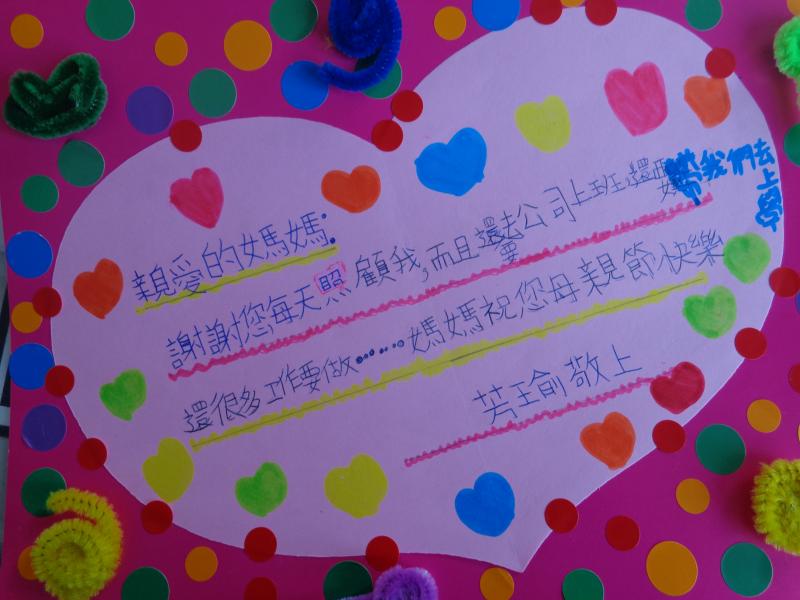 親愛的媽媽:
謝謝您每天照顧我,而且還要去公司上班還要帶我們去上學
還很多工作要做……媽媽祝您母親節快樂
芳瑜敬上